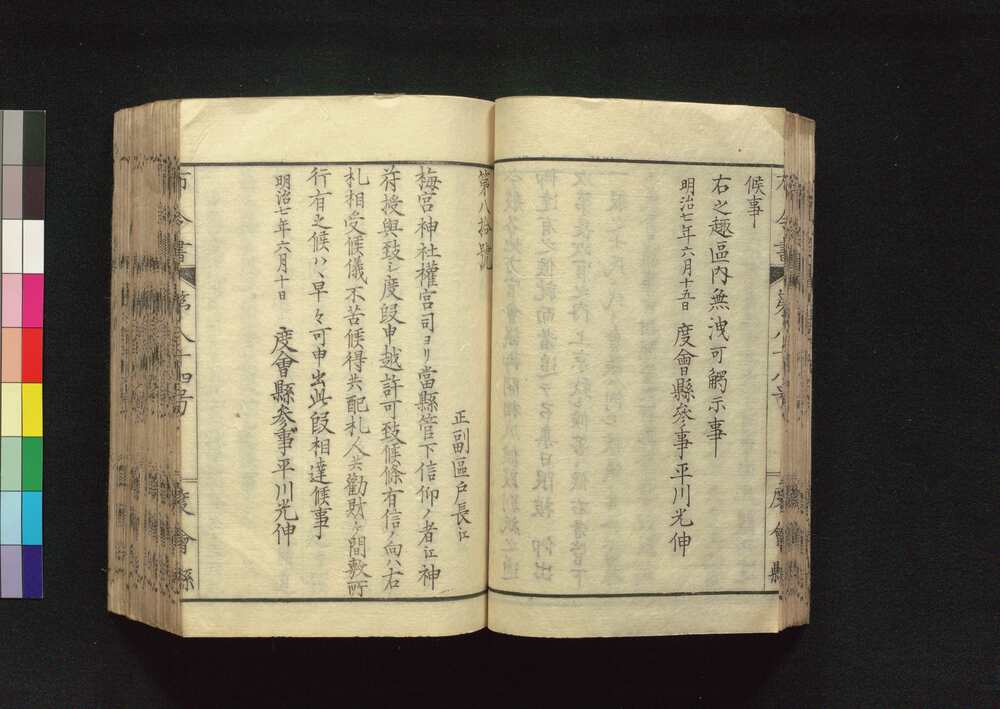 候事
右之趣區内無洩可觸示事
明治七年六月十五日 度會縣參事平川光伸
第八拾號
正副區戸長江
梅宮神社權宮司ヨリ當縣管下信仰ノ者江神
符授與致シ度段申越許可致候條有信ノ向ハ右
札相受候儀不苦候得共配札人共勸財ヶ間敷所
行有之候ハヽ早々可申出此段相達候事
明治七年六月十日 度會縣參事平川光伸
布令書 第八十四号 度會縣